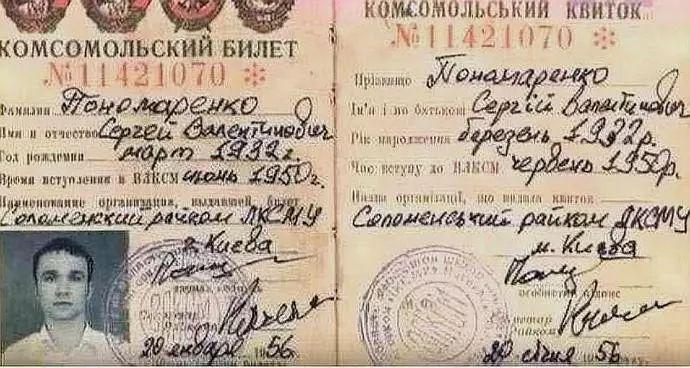 КОМСОМОЛЬСКИЙ БИЛЕТ
№11421070
Фамилия Пономаренко
Имя и отчество Сергей Валентинович
Год рождения март 1932г.
Время вступления в ВЛКСМ июнь 1950г.
Наименование организации, выдавшей билет
Соломенский райком ЛКСМУ
г. Киева
20 января 1956г.
КОМСОМОЛЬСЬКИЙ КВИТОК
№11421070
Прізвище Пономаренко
Ім'я і по батькові Сергій Валентинович
Рік народження березень 1932р.
Час вступу до ВЛКСМ червень 1950р.
Назва організації, що видала квиток
Соломенський райком ЛКСМУ
м. Києва
особистий підпис
20 січня 1956